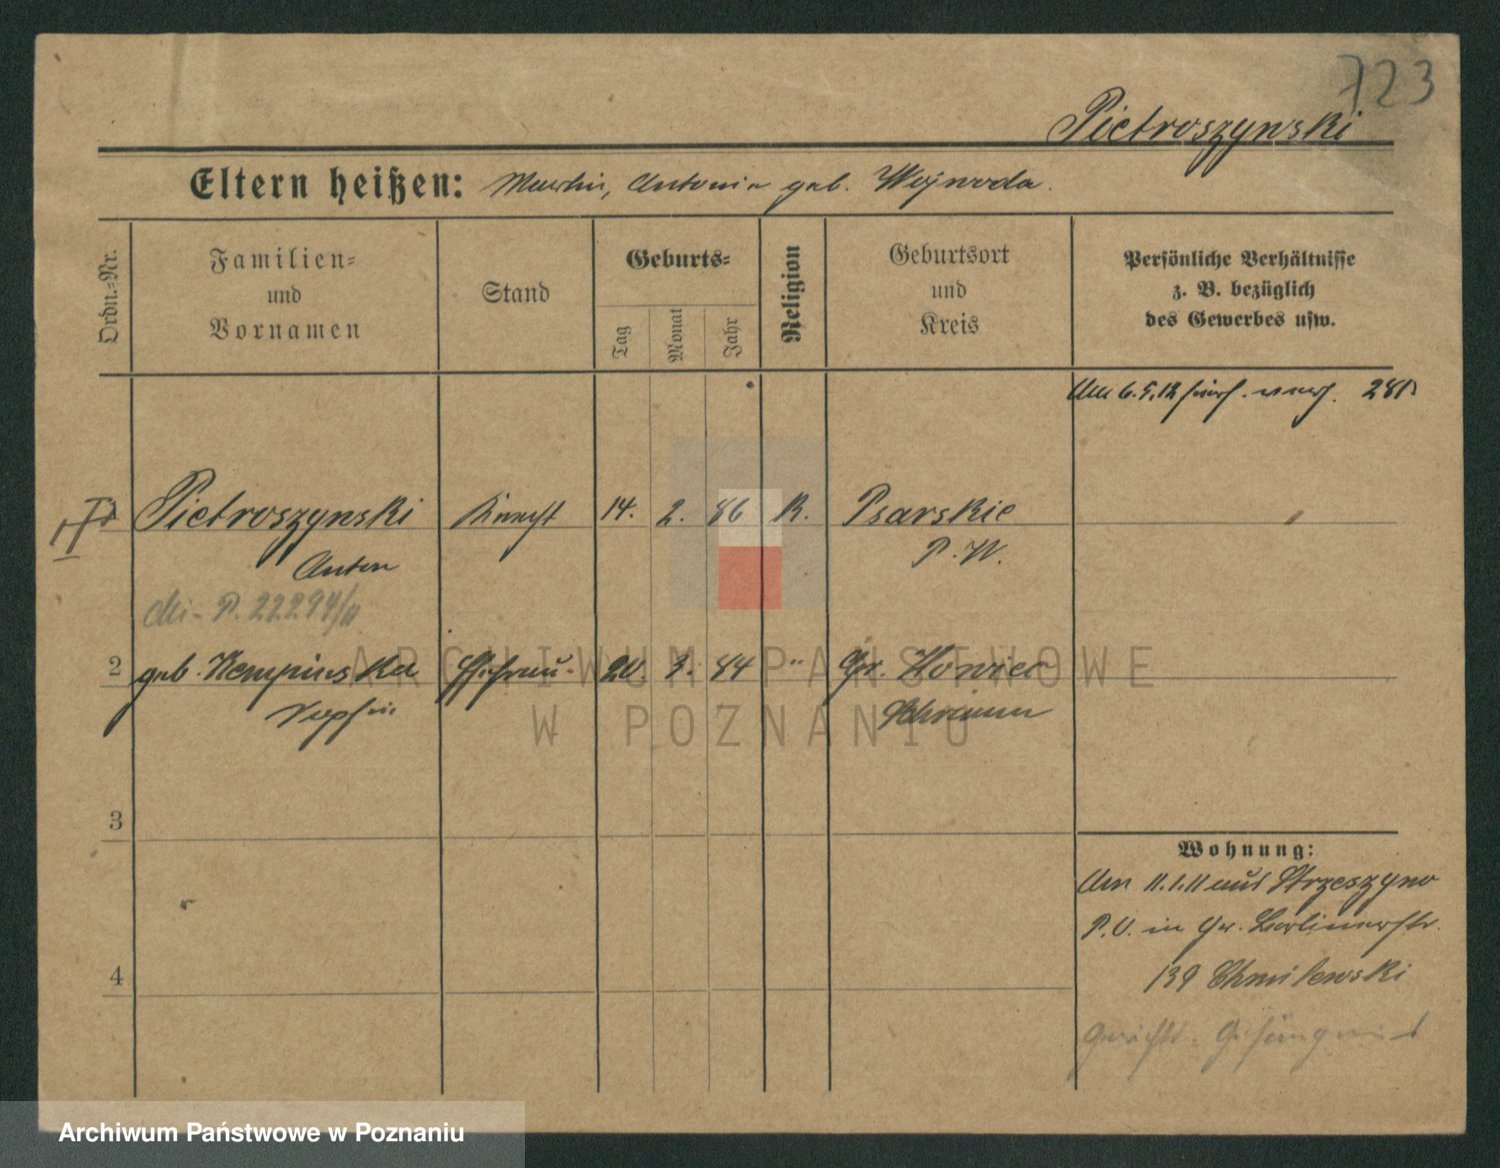 723
Pietroszynski
Eltern heißen: Martin, Antonie geb. Wojwoda.
Ordn.-Nr.
Familien-
und
Vornamen
Stand
Geburts-
Tag
Monat
Jahr
Religion
Geburtsort
und
Kreis
Persönliche Verhältnisse
z. B. bezüglich
des Gewerbes usw.
Am 6. 5. 12
Pietroszynski Knecht 14. 2. 86 K. Psarskie
Anton P. W.
P. 22294/11
2 geb. Kempinska Ehefrau 20. 3. 84 " Gr.
Sophie Schrimm
3
Wohnung:
Am 11. 1. 11 aus Strzeszyno
P. O. in Gr. Berlinerstr.
139 Chmilewski
4
Gerichts-Gefängnis
ARCHIWUM PAŃSTWOWE
W POZNANIU
Archiwum Państwowe w Poznaniu